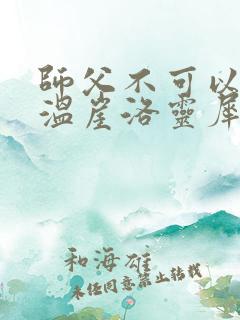 師父不可以
溫崖洛靈犀
和海雄
未經同意禁止轉載